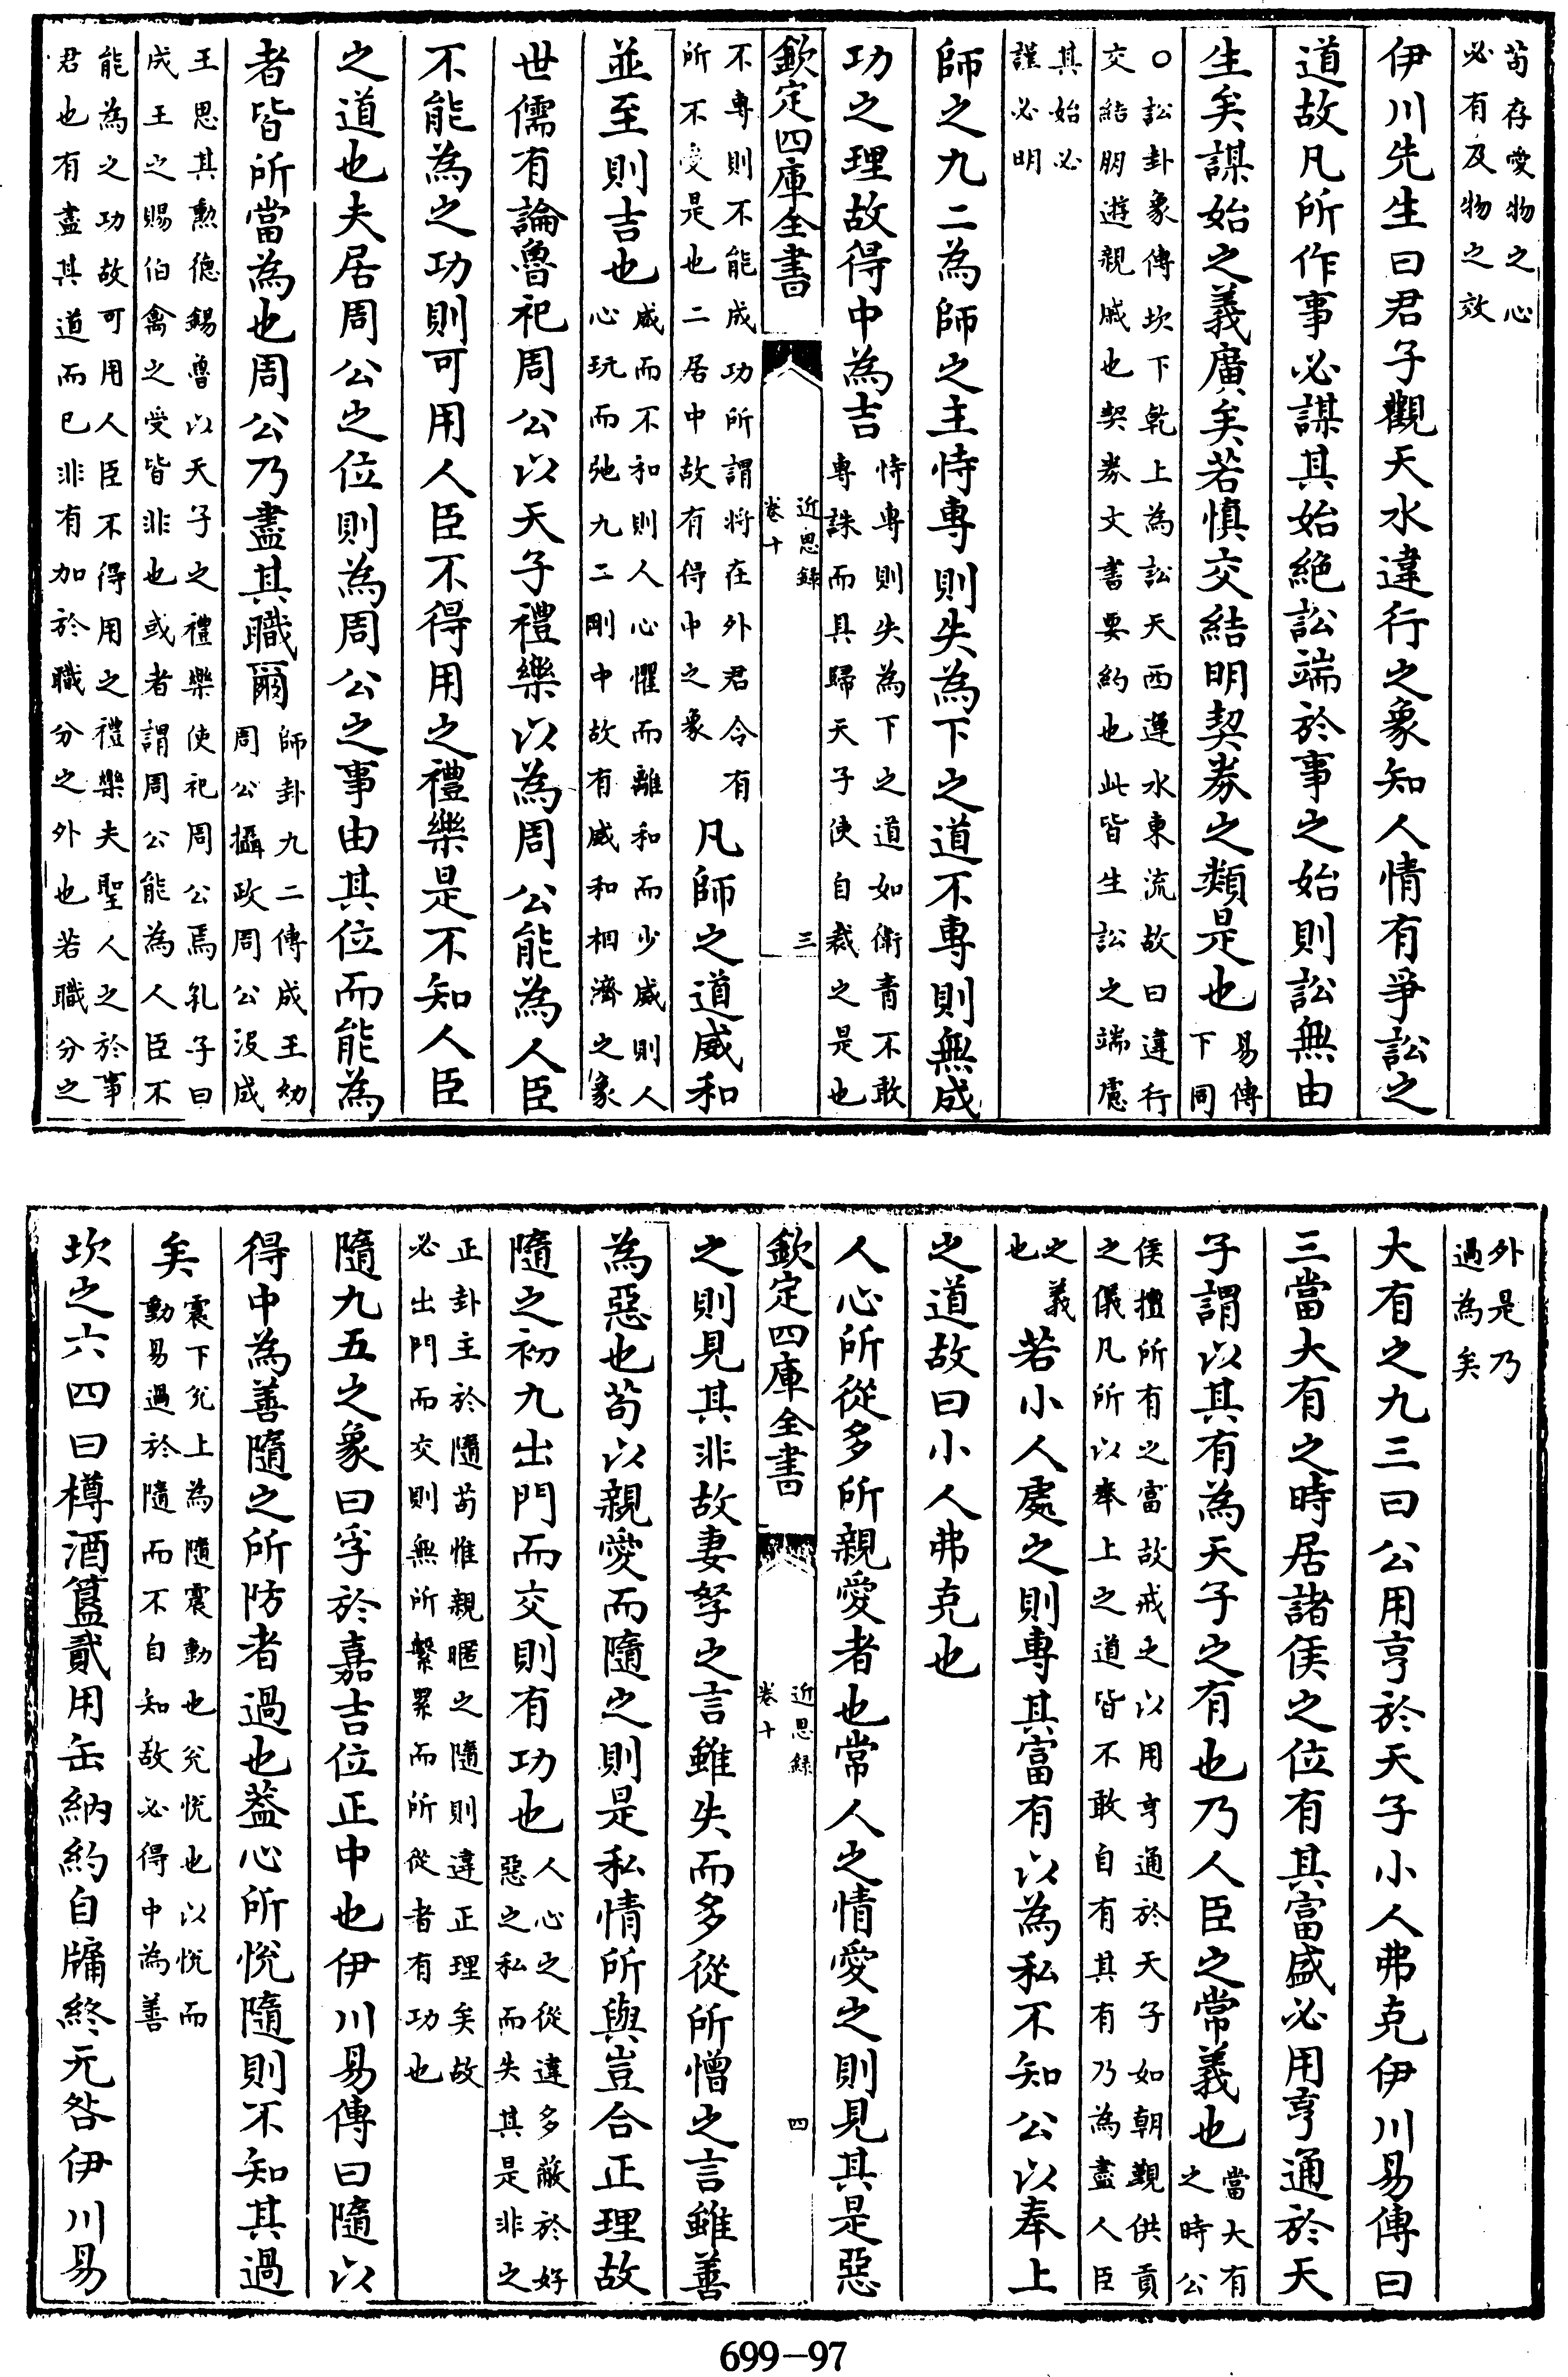 苟存愛物之心
必有及物之效
伊川先生曰君子觀天水違行之象知人情有爭訟之
道故凡所作事必謀其始絕訟端於事之始則訟無由
生矣謀始之義廣矣若慎交結明契劵之類是也易傳
下同
○訟卦象傳坎下乾上為訟天西運水東流故曰違行
交結朋遊親戚也契劵文書要約也此皆生訟之端慮
其始必
謹必明
師之九二為師之主恃專則失為下之道不專則無成
功之理故得中為吉恃專則失為下之道如衛青不敢
專誅而具歸天子使自裁之是也
欽定四庫全書
近思録
卷十
三
不專則不能成功所謂將在外君令有
所不受是也二居中故有得中之象
凡師之道威和
並至則吉也威而不和則人心懼而離和而少威則人
心玩而弛九二剛中故有威和相濟之象
世儒有論魯祀周公以天子禮樂以為周公能為人臣
不能為之功則可用人臣不得用之禮樂是不知人臣
之道也夫居周公之位則為周公之事由其位而能為
者皆所當為也周公乃盡其職爾師卦九二傳成王幼
周公攝政周公沒成
王思其勲德錫魯以天子之禮樂使祀周公焉孔子曰
成王之賜伯禽之受皆非也或者謂周公能為人臣不
能為之功故可用人臣不得用之禮樂夫聖人之於事
君也有盡其道而已非有加於職分之外也若職分之
外是乃
過為矣
大有之九三曰公用亨於天子小人弗克伊川易傳曰
三當大有之時居諸侯之位有其富盛必用亨通於天
子謂以其有為天子之有也乃人臣之常義也當大有
之時公
侯擅所有之富故戒之以用亨通於天子如朝覲供貢
之儀凡所以奉上之道皆不敢自有其有乃為盡人臣
之義
也
若小人處之則專其富有以為私不知公以奉上
之道故曰小人弗克也
人心所從多所親愛者也常人之情愛之則見其是惡
欽定四庫全書
近思録
卷十
四
之則見其非故妻孥之言雖失而多從所憎之言雖善
為惡也苟以親愛而隨之則是私情所與豈合正理故
隨之初九出門而交則有功也人心之從違多蔽於好
惡之私而失其是非之
正卦主於隨苟惟親暱之隨則違正理矣故
必出門而交則無所繫累而所從者有功也
隨九五之象曰孚於嘉吉位正中也伊川易傳曰隨以
得中為善隨之所防者過也葢心所悅隨則不知其過
矣震下兊上為隨震動也兊悅也以悅而
動易過於隨而不自知故必得中為善
坎之六四曰樽酒簋貳用缶納約自牖終无咎伊川易
699-97